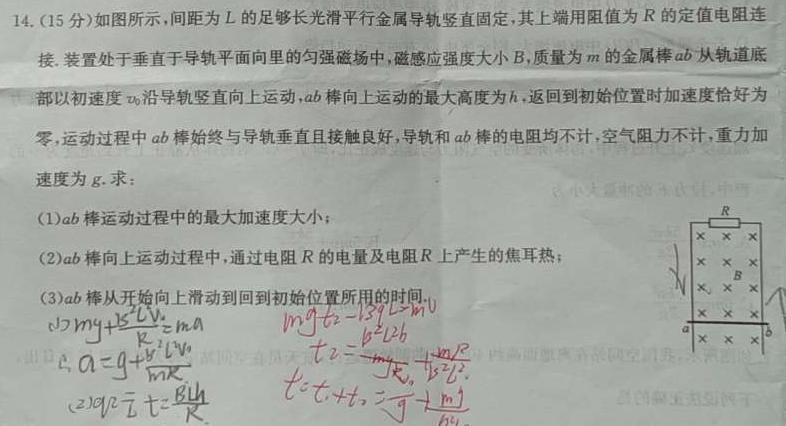 14.(15分)如图所示,间距为L的足够长光滑平行金属导轨竖直固定,其上端用阻值为R的定值电阻连
接.装置处于垂直于导轨平面向里的匀强磁场中,磁感应强度大小B,质量为m的金属棒ab从轨道底
部以初速度v₀沿导轨竖直向上运动,ab棒向上运动的最大高度为h,返回到初始位置时加速度恰好为
零,运动过程中ab棒始终与导轨垂直且接触良好,导轨和ab棒的电阻均不计,空气阻力不计,重力加
速度为g.求:
(1)ab棒运动过程中的最大加速度大小;
(2)ab棒向上运动过程中,通过电阻R的电量及电阻R上产生的焦耳热;
(3)ab棒从开始向上滑动到回到初始位置所用的时间.
R
× × ×
× × ×
B
× × ×
× × ×
a b
× × ×
(1) mg+B²L²v₀/R=ma
∴ a=g+B²L²v₀/mR